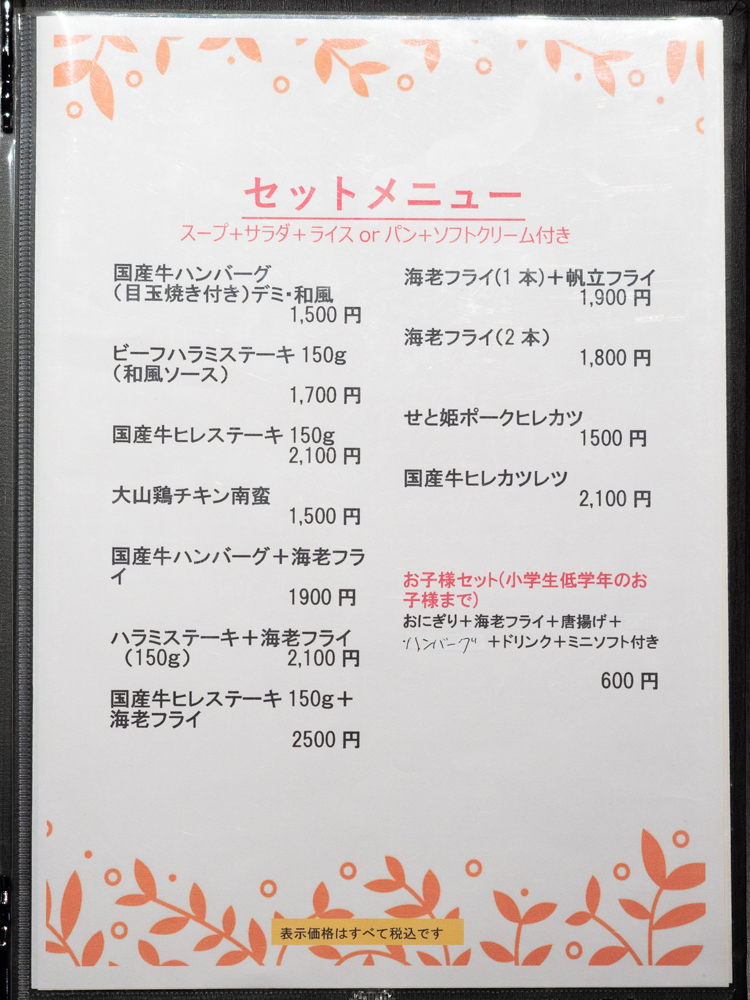 セットメニュー
スープ+サラダ+ライス or パン+ソフトクリーム付き
国産牛ハンバーグ
(目玉焼き付き)デミ・和風
1,500 円
ビーフハラミステーキ 150g
(和風ソース)
1,700 円
国産牛ヒレステーキ 150g
2,100 円
大山鶏チキン南蛮
1,500 円
国産牛ハンバーグ+海老フラ
イ
1900 円
ハラミステーキ+海老フライ
(150g) 2,100 円
国産牛ヒレステーキ 150g+
海老フライ
2500 円
海老フライ(1 本)+帆立フライ
1,900 円
海老フライ(2 本)
1,800 円
せと姫ポークヒレカツ
1500 円
国産牛ヒレカツレツ
2,100 円
お子様セット(小学生低学年のお
子様まで)
おにぎり+海老フライ+唐揚げ+
ハンバーグ +ドリンク+ミニソフト付き
600 円
表示価格はすべて税込です